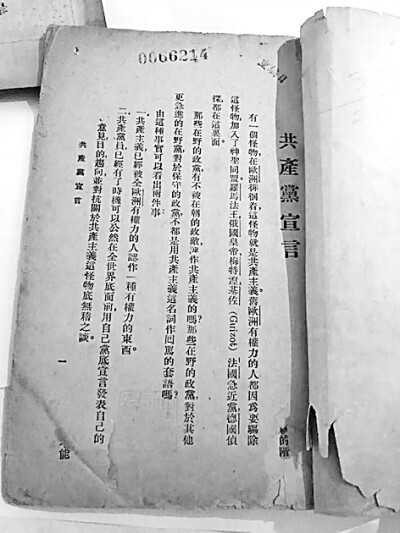 0066214
共產黨宣言
有一個怪物在歐洲徘徊着這怪物就是共產主義舊歐洲有權力的人都因為要驅除
這怪物加入了神聖同盟羅馬法王俄國皇帝梅特湼基佐(Guizot)法國急近黨德國偵
探都在這裏面。
那些在野的政黨有不被在朝的政敵誣作共產主義的嗎?那些在野的政黨對於其他
更急進的在野黨對於保守的政黨不都是用共產主義這名詞作囘罵的套語嗎?
由這種事實可以看出兩件事:
一、共產主義已經被全歐洲有權力的人認作一種有權力的東西。
二、共產黨員已經有了時機可以公然在全世界底面前用自己黨底宣言發表自己的
意見目的趨向並對抗關於共產主義這怪物底無稽之談。
共產黨宣言
一